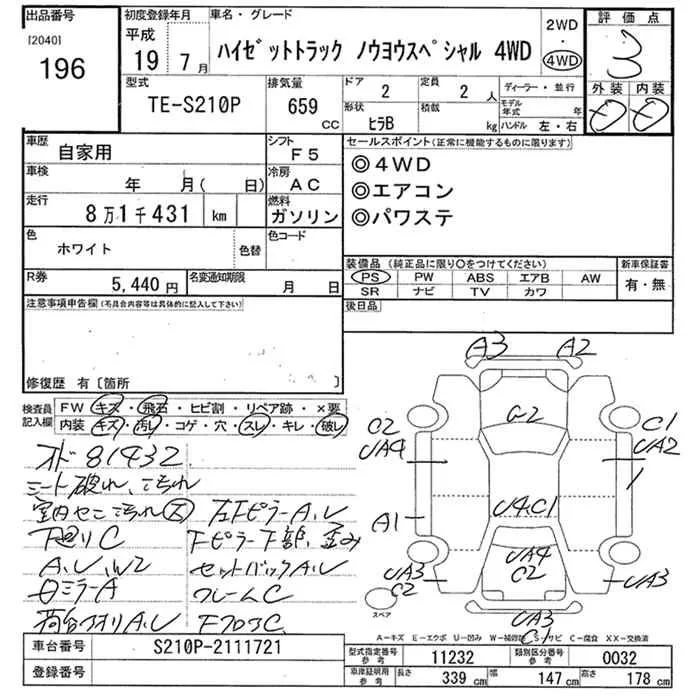 出品番号
[2040]
196
初度登録年月
平成
19 7 月
車名・グレード
ハイゼットトラック ノウヨウスペシャル 4WD
2WD
・
4WD
評価点
3
外装 内装
型式
TE-S210P
排気量
659 CC
ドア
2
定員
2 人
形状
ヒラB
積載
kg
ディーラー・並行
モデル年式 年
ハンドル 左・右
車歴
自家用
シフト
F5
車検
年 月( 日)
冷房
AC
走行
8万1千431 km
燃料
ガソリン
色
ホワイト
色替
色コード
R券
5,440円
名変通知期限
月 日
セールスポイント(正常に機能するものに限ります)
◎4WD
◎エアコン
◎パワステ
装備品(純正品に限り○をつけてください)
PS PW ABS エアB AW
SR ナビ TV カワ
新車保証書
有・無
後日品
注意事項申告欄(弔具合内容等は具体的に記入して下さい)
修復歴 有〔箇所
検査員記入欄
FW キズ・飛石・ヒビ割・リペア跡・×要
内装 キズ・汚レ・コゲ・穴・スレ・キレ・破レ
オド81432
シート破れ、こげれ
下廻りC
A.U.W2
ミラーA
荷台アオリA.U
左Fピラー A.U
Fピラー下部、歪み
セットバックA.U
フレームC
FフロアC
A3 A2
C2
UA4
A1
UA3
C2
G2
U4.C1
UA4
C2
C1
UA2
1
UA3
UA3
C1
スペア
A-キズ E-エクボ U-凹み W-補修跡 S-サビ C-腐食 XX-交換済
車台番号
S210P-2111721
登録番号
型式指定番号 参考
11232
類別区分番号 参考
0032
車庫証明用 参考
長さ 339 cm
幅 147 cm
高さ 178 cm